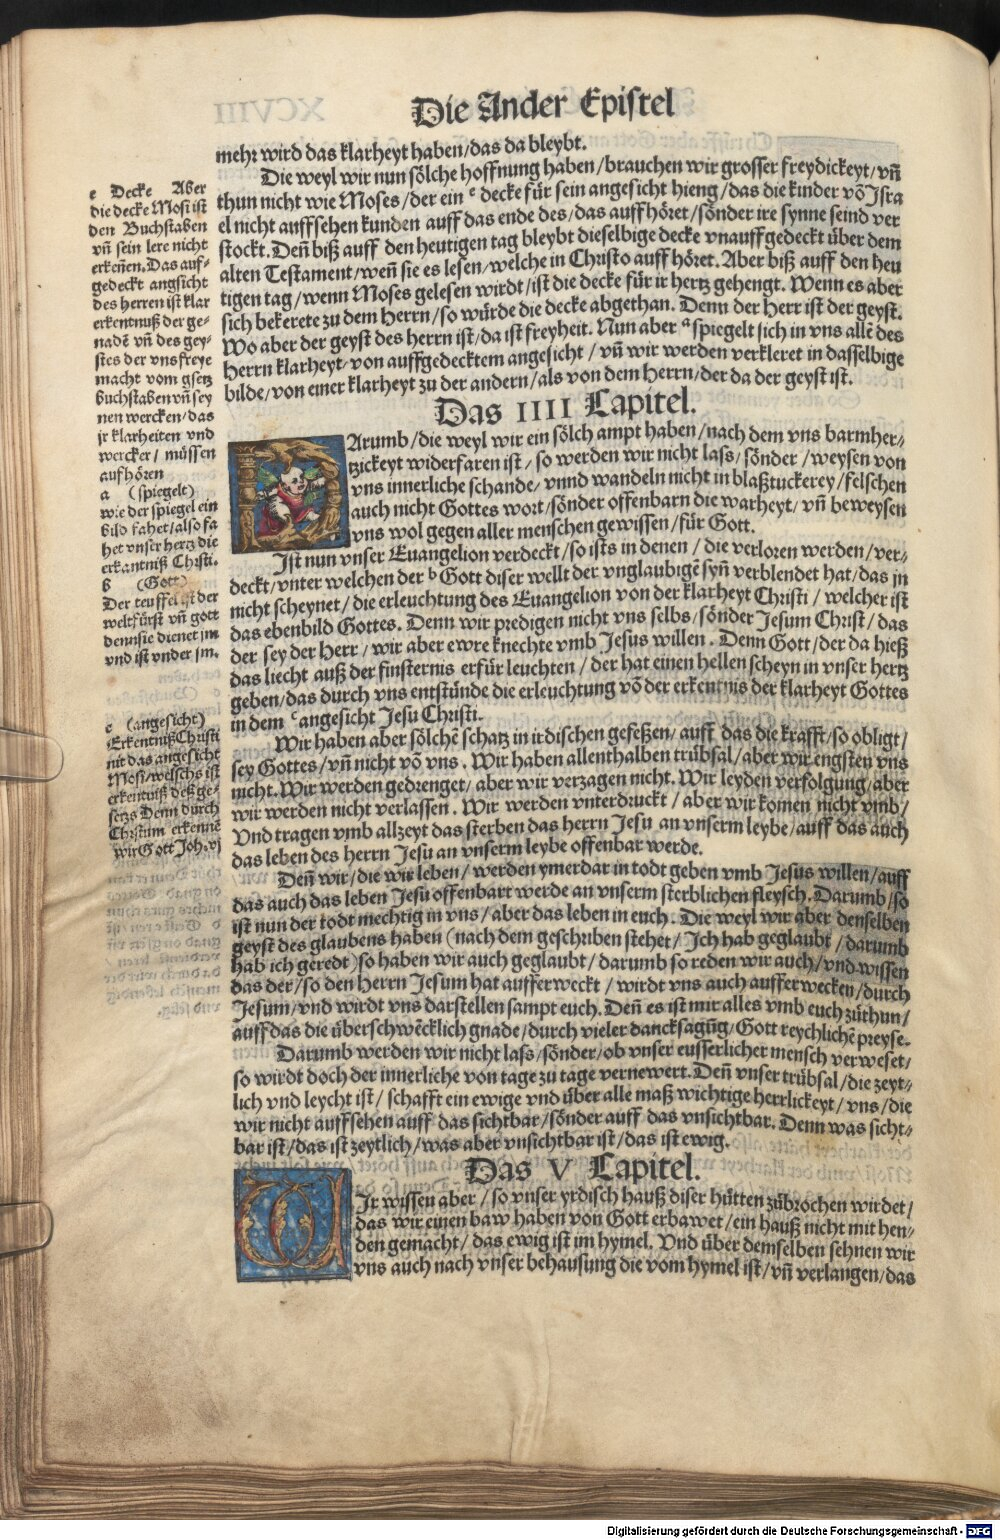 Die Ander Epistel
mehr wird das klarheyt haben/das da bleybt.
Die weyl wir nun sölche hoffnung haben/brauchen wir grosser freydickeyt/vñ
thun nicht wie Moses/der ein e decke für sein angesicht hieng/das die kinder võ Isra
el nicht auffsehen kunden auff das ende des/das auffhöret/sönder ire synne seind ver
stockt. Deñ biß auff den heutigen tag bleybt dieselbige decke vnauffgedeckt über dem
alten Testament/weñ sie es lesen/welche in Christo auff höret. Aber biß auff den heu
tigen tag/wenn Moses gelesen wirdt/ist die decke für ir hertz gehengt. Wenn es aber
sich bekerete zu dem Herrn/so würde die decke abgethan. Denn der Herr ist der geyst.
Wo aber der geyst des herrn ist/da ist freyheit. Nun aber a spiegelt sich in vns allẽ des
Herrn klarheyt/von auffgedecktem angesicht/vñ wir werden verkleret in dasselbige
bilde/von einer klarheyt zu der andern/als von dem Herrn/der da der geyst ist.
e Decke Aber
die decke Mosi ist
den Buchstaben
vñ sein lere nicht
erkeñen. Das auf-
gedeckt angsicht
des herren ist klar
erkentnuß der ge-
nadẽ vñ des gey-
stes der vns freye
macht vom gsetz
buchstaben vñ sey
nen wercken/das
jr klarheiten vnd
wercker/müssen
aufhören
a (spiegelt)
wie der spiegel ein
bild fahet/also fa
het vnser hertz die
erkantniß Christi.
b (Gott)
Der teuffel ist der
weltfürst vñ gott
denn sie dienet jm
vnd ist vnder jm.
c (angesicht)
Erkentniß Christi
nit das angesicht
Mosi/welchs ist
erkentniß deß ge-
setzs Denn durch
Christum erkennẽ
wir Gott Joh. vj
Das IIII Capitel.
DArumb/die weyl wir ein sölch ampt haben/nach dem vns barmher-
tzickeyt widerfaren ist/so werden wir nicht lass/sönder/weysen von
vns innerliche schande/vnnd wandeln nicht in blaßtuckerey/felschen
auch nicht Gottes wort/sönder offenbarn die warheyt/vñ beweysen
vns wol gegen aller menschen gewissen/für Gott.
Ist nun vnser Euangelion verdeckt/so ists in denen/die verloren werden/ver-
deckt/vnter welchen der b Gott diser wellt der vnglaubigẽ syñ verblendet hat/das jn
nicht scheynet/die erleuchtung des Euangelion von der klarheyt Christi/welcher ist
das ebenbild Gottes. Denn wir predigen nicht vns selbs/sönder Jesum Christ/das
der sey der Herr/wir aber ewre knechte vmb Jesus willen. Denn Gott/der da hieß
das liecht auß der finsternis erfür leuchten/der hat einen hellen scheyn in vnser hertz
geben/das durch vns entstünde die erleuchtung võ der erkentnis der klarheyt Gottes
in dem c angesicht Jesu Christi.
Wir haben aber sölchẽ schatz in irdischen gefeßen/auff das die krafft/so obligt/
sey Gottes/vñ nicht võ vns. Wir haben allenthalben trübsal/aber wir engsten vns
nicht. Wir werden gedrenget/aber wir verzagen nicht. Wir leyden verfolgung/aber
wir werden nicht verlassen. Wir werden vnterdruckt/aber wir komen nicht vmb/
Vnd tragen vmb allzeyt das sterben das herrn Jesu an vnserm leybe/auff das auch
das leben des herrn Jesu an vnserm leybe offenbar werde.
Deñ wir/die wir leben/werden ymerdar in todt geben vmb Jesus willen/auff
das auch das leben Jesu offenbart werde an vnserm sterblichen fleysch. Darumb/so
ist nun der todt mechtig in vns/aber das leben in euch. Die weyl wir aber denselben
geyst des glaubens haben (nach dem geschriben stehet/Ich hab geglaubt/darumb
hab ich geredt) so haben wir auch geglaubt/darumb so reden wir auch/vnd wissen
das der/so den Herrn Jesum hat aufferweckt/wirdt vns auch aufferwecken/durch
Jesum/vnd wirdt vns darstellen sampt euch. Deñ es ist mir alles vmb euch zůthun/
auff das die überschwẽcklich gnade/durch vieler dancksagũg/Gott reychlichẽ preyse.
Darumb werden wir nicht lass/sönder/ob vnser eusserlicher mensch verweset/
so wirdt doch der innerliche von tage zu tage vernewert. Deñ vnser trübsal/die zeyt-
lich vnd leycht ist/schafft ein ewige vnd über alle maß wichtige herrlickeyt/vns/die
wir nicht auffsehen auff das sichtbar/sönder auff das vnsichtbar. Denn was sicht-
bar ist/das ist zeytlich/was aber vnsichtbar ist/das ist ewig.
Das V Capitel.
WIr wissen aber/so vnser yrdisch hauß diser hütten zůbrochen wirdet/
das wir einen baw haben von Gott erbawet/ein hauß nicht mit hen-
den gemacht/das ewig ist im hymel. Vnd über demselben sehnen wir
vns auch nach vnser behausung die vom hymel ist/vñ verlangen/das
Digitalisierung gefördert durch die Deutsche Forschungsgemeinschaft - DFG